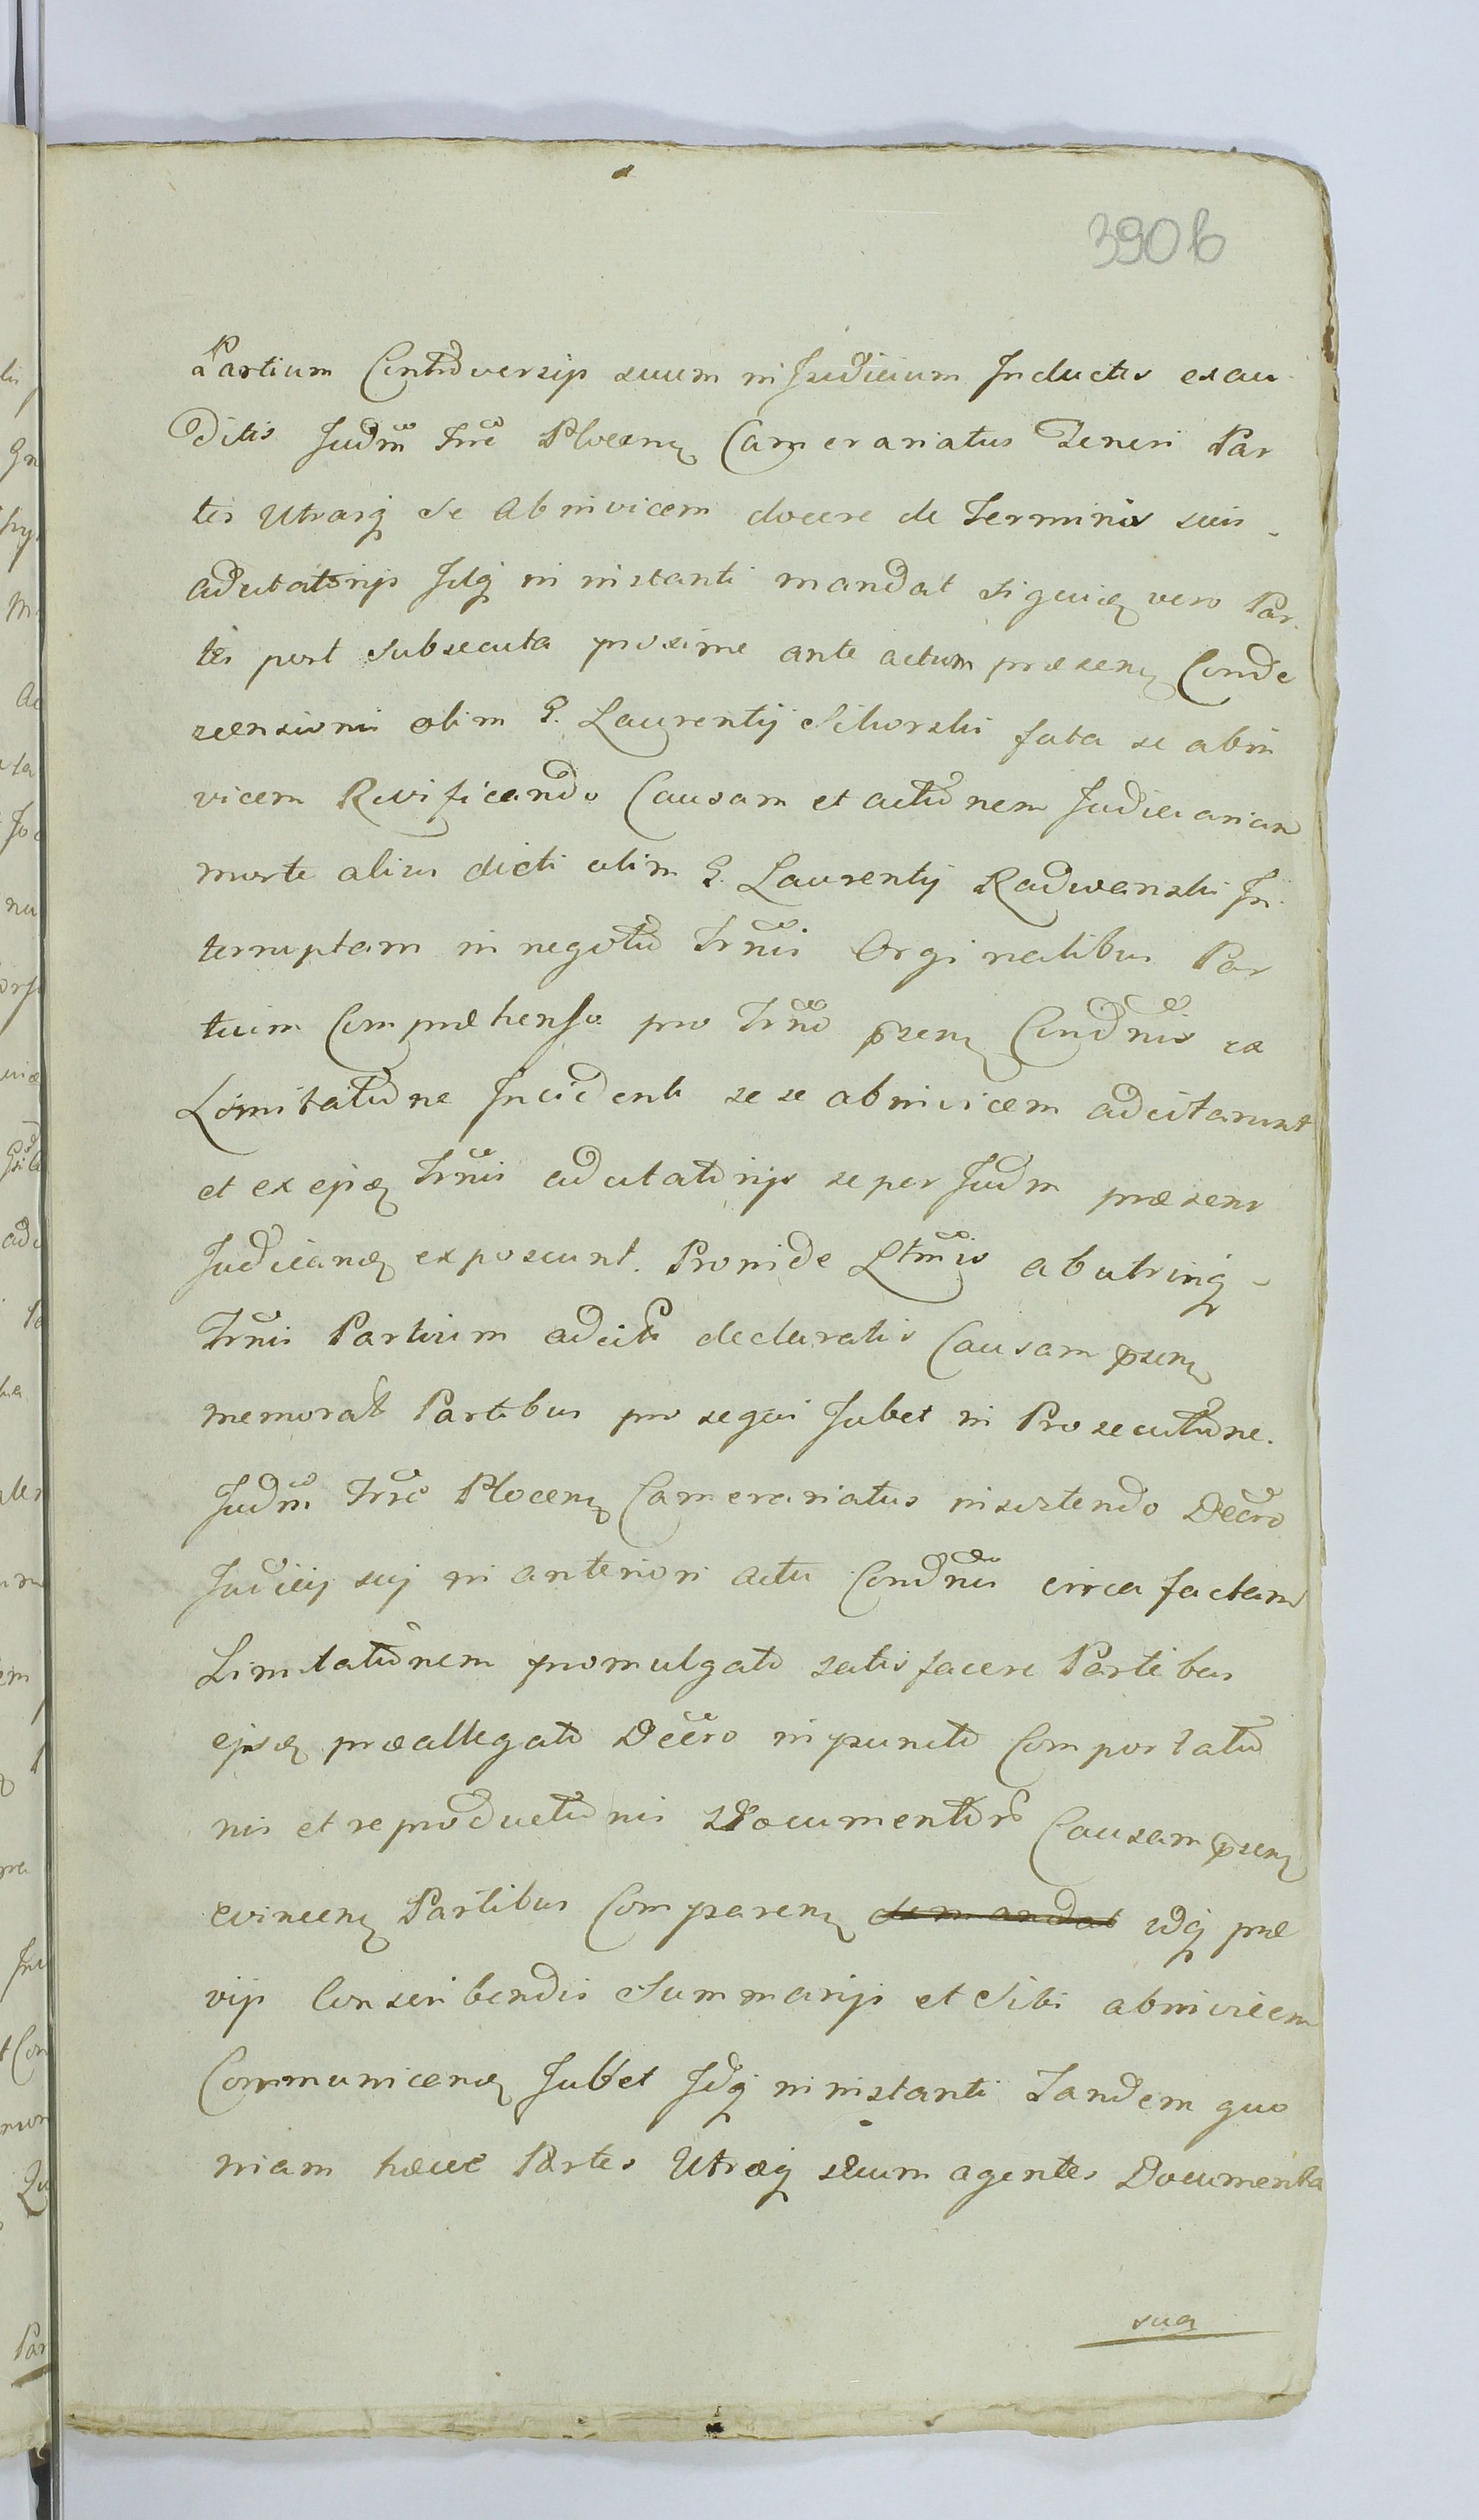 390b
Partium Controversijs suum in Judicium Inductis exau
ditis Judm Trre Plocen Camerariatus Teneri Par
tes Utrasq se abinvicem docere de Terminis suis
adcitatorijs Idq in instanti mandat siquidem vero Par
tes post subsecuta proxime ante actum præsen Conde
scensionis olim G. Laurentij Sikorski fata se abin
vicem Revificando Causam et actionem Judiciariam
morte alias dicti olim G. Laurentij Radwanski In
terruptam in negotio Trnis Orginalibus Par
tium Compræhenso pro Trno præsen Condnis ex
Limitatione Incidenti sese abinvicem adcitarunt
et ex ejusd Trnis adcitatorijs se per Judm præsens
Judicand exposcunt. Proinde Ltmis ab utrinq
Trnis Partium adcit declaratis Causam præsen
memorat Partibus prosequi Jubet in Prosecutione.
Judm Trre Plocen Camerariatus insistendo Decro
Judicij sui in anteriori actu Condnis circa factam
Limitationem promulgato satisfacere Partibus
ejusd præallegato Decro in puncto Comportatio
nis et reproductionis Documentor Causam præsen
evincen Partibus Comparen demandat idq præ
vijs Conscribendis Summarijs et Sibi abinvicem
Communicand Jubet Idq in instanti Tandem quo
niam hæcce Partes Utræq suum agentes Documenta
sua